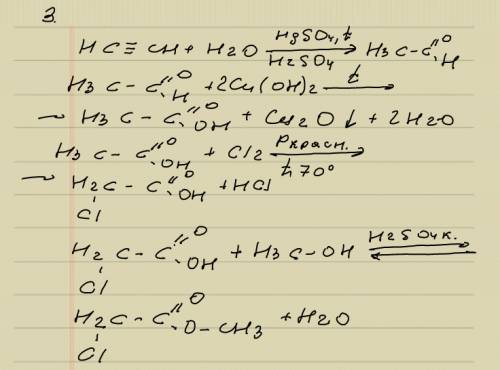 3.
HC≡CH + H2O HgSO4, t / H2SO4 → H3C-C=O H
H3C-C=O H + 2Cu(OH)2 t →
~ H3C-C=O OH + Cu2O↓ + 2H2O
H3C-C=O OH + Cl2 Pкрасн. / t, 70° →
~ H2C-C=O OH + HCl
Cl
H2C-C=O OH + H3C-OH H2SO4 к. ⇄
Cl
H2C-C=O O-CH3 + H2O
Cl